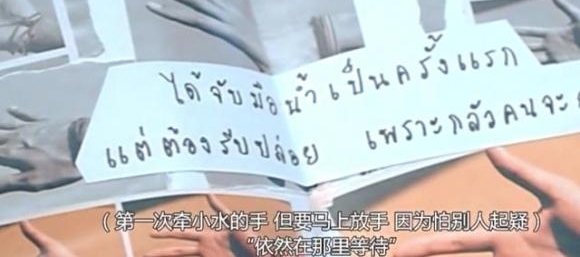 ได้จับมือน้ำเป็นครั้งแรก
แต่ต้องรีบปล่อย เพราะกลัวคนจะ
(第一次牵小水的手 但要马上放手 因为怕别人起疑)
“依然在那里等待”